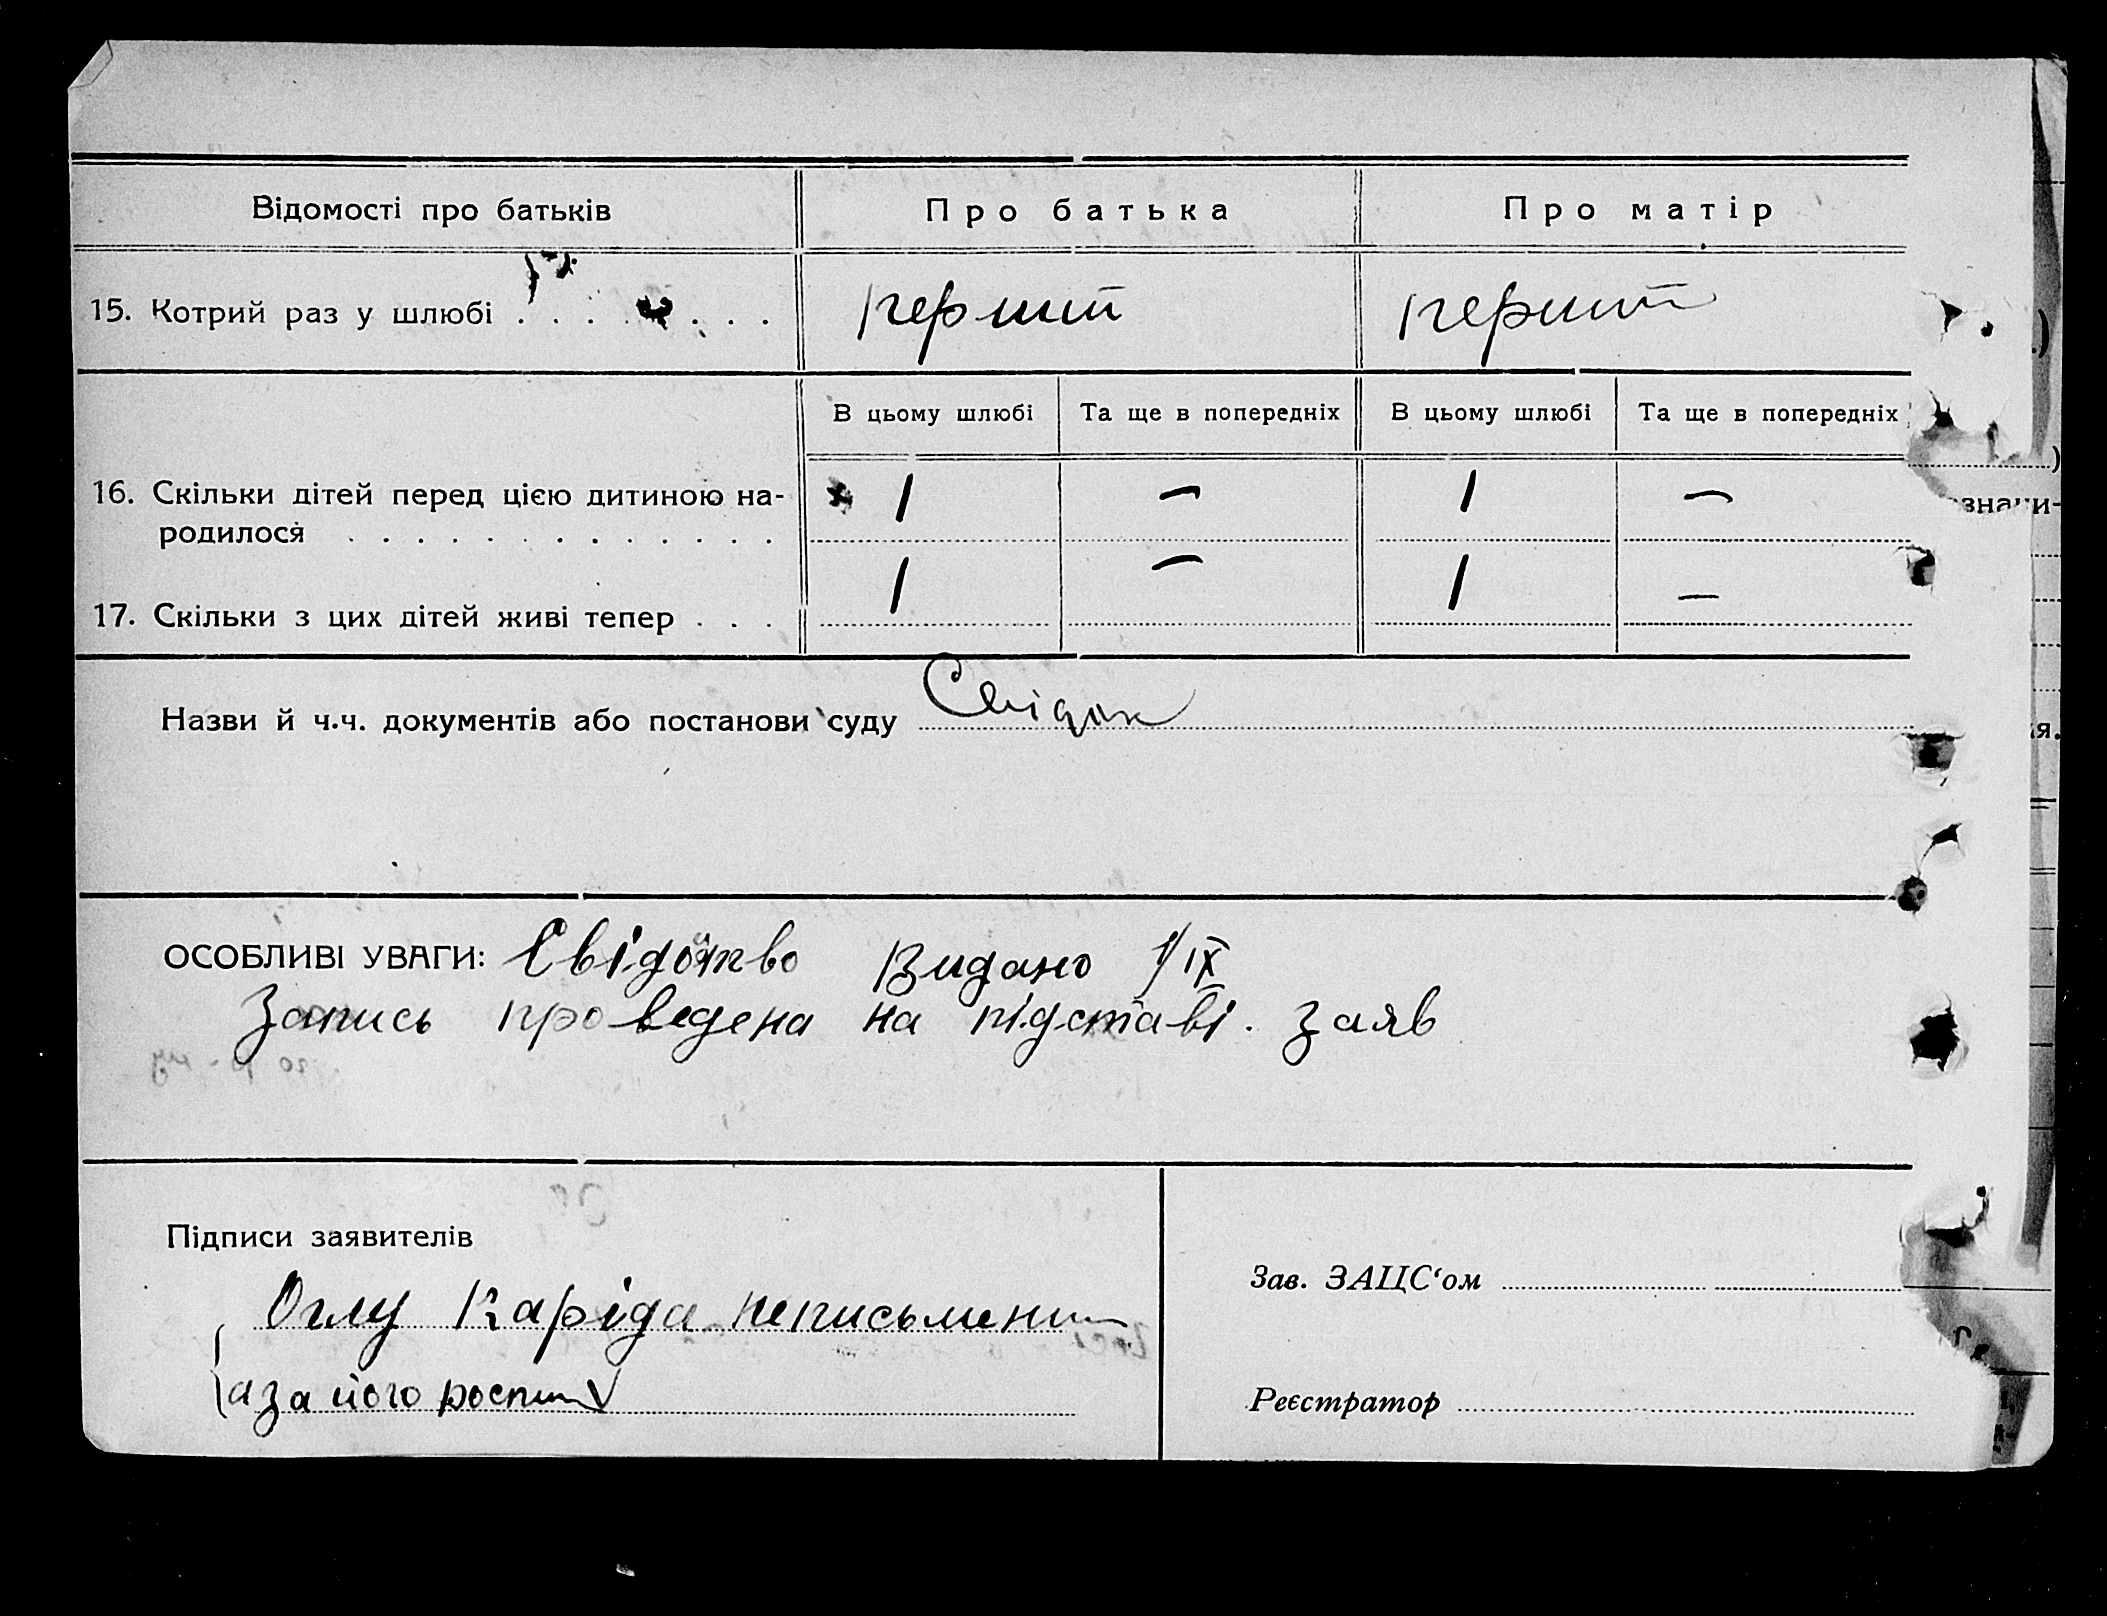 Відомості про батьків Про батька Про матір
15. Котрий раз у шлюбі . . . . . . . . перший перший
В цьому шлюбі Та ще в попередніх В цьому шлюбі Та ще в попередніх
16. Скільки дітей перед цією дитиною на- 1 — 1 —
родилося . . . . . . . . . . . . .
17. Скільки з цих дітей живі тепер . . . 1 — 1 —
Назви й ч.ч. документів або постанови суду Свідок
ОСОБЛИВІ УВАГИ: Свідотво Видано 1/IX
Запись проведена на підставі. заяв
Підписи заявителів
Оглу Каріда неписьмени
а за його роспи
Зав. ЗАЦС‘ом
Реєстратор